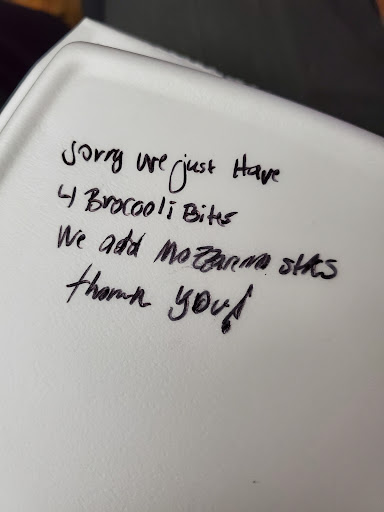 Sorry we just Have
4 Brocooli Bites
We add Mozzarena stks
thank you!